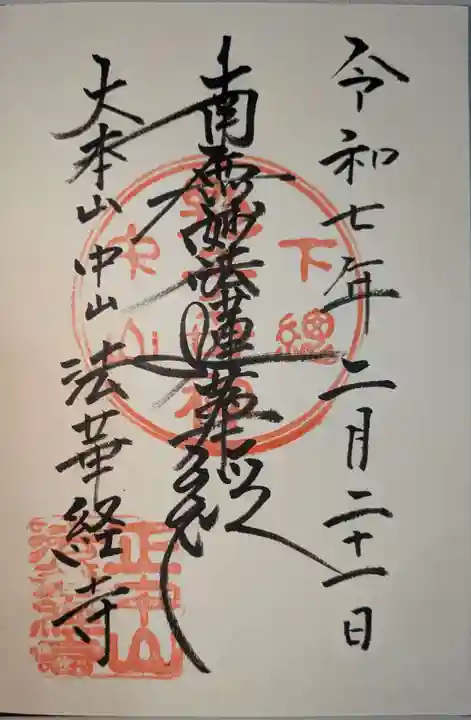 令和七年二月二十一日
南無妙法蓮華経
大本山中山法華経寺
下總
中山
正中山